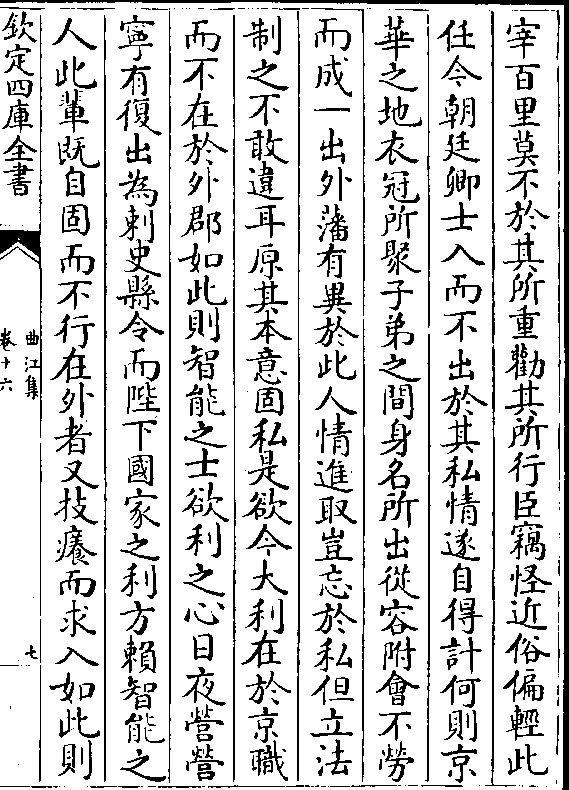 宰百里莫不於其所重勸其所行臣竊怪近俗偏輕此
任今朝廷卿士入而不出於其私情遂自得計何則京
華之地衣冠所聚子弟之間身名所出從容附會不勞
而成一出外藩有異於此人情進取豈忘於私但立法
制之不敢違耳原其本意固私是欲今大利在於京職
而不在於外郡如此則智能之士欲利之心日夜營營
寧有復出為刺史縣令而陛下國家之利方賴智能之
人此輩既自固而不行在外者又技癢而求入如此則
欽定四庫全書
曲江集
卷十六
七